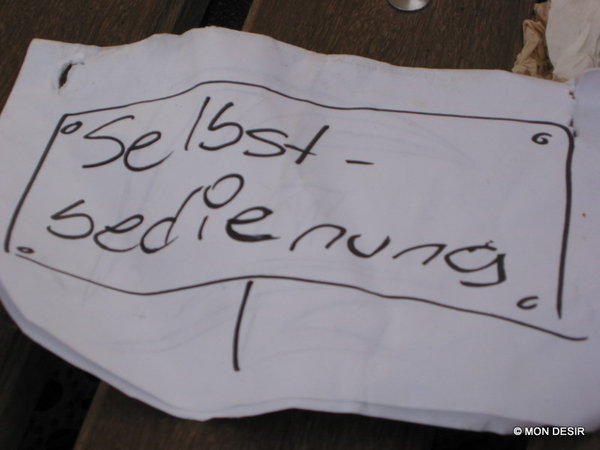 Selbst-
bedienung
© MON DESIR